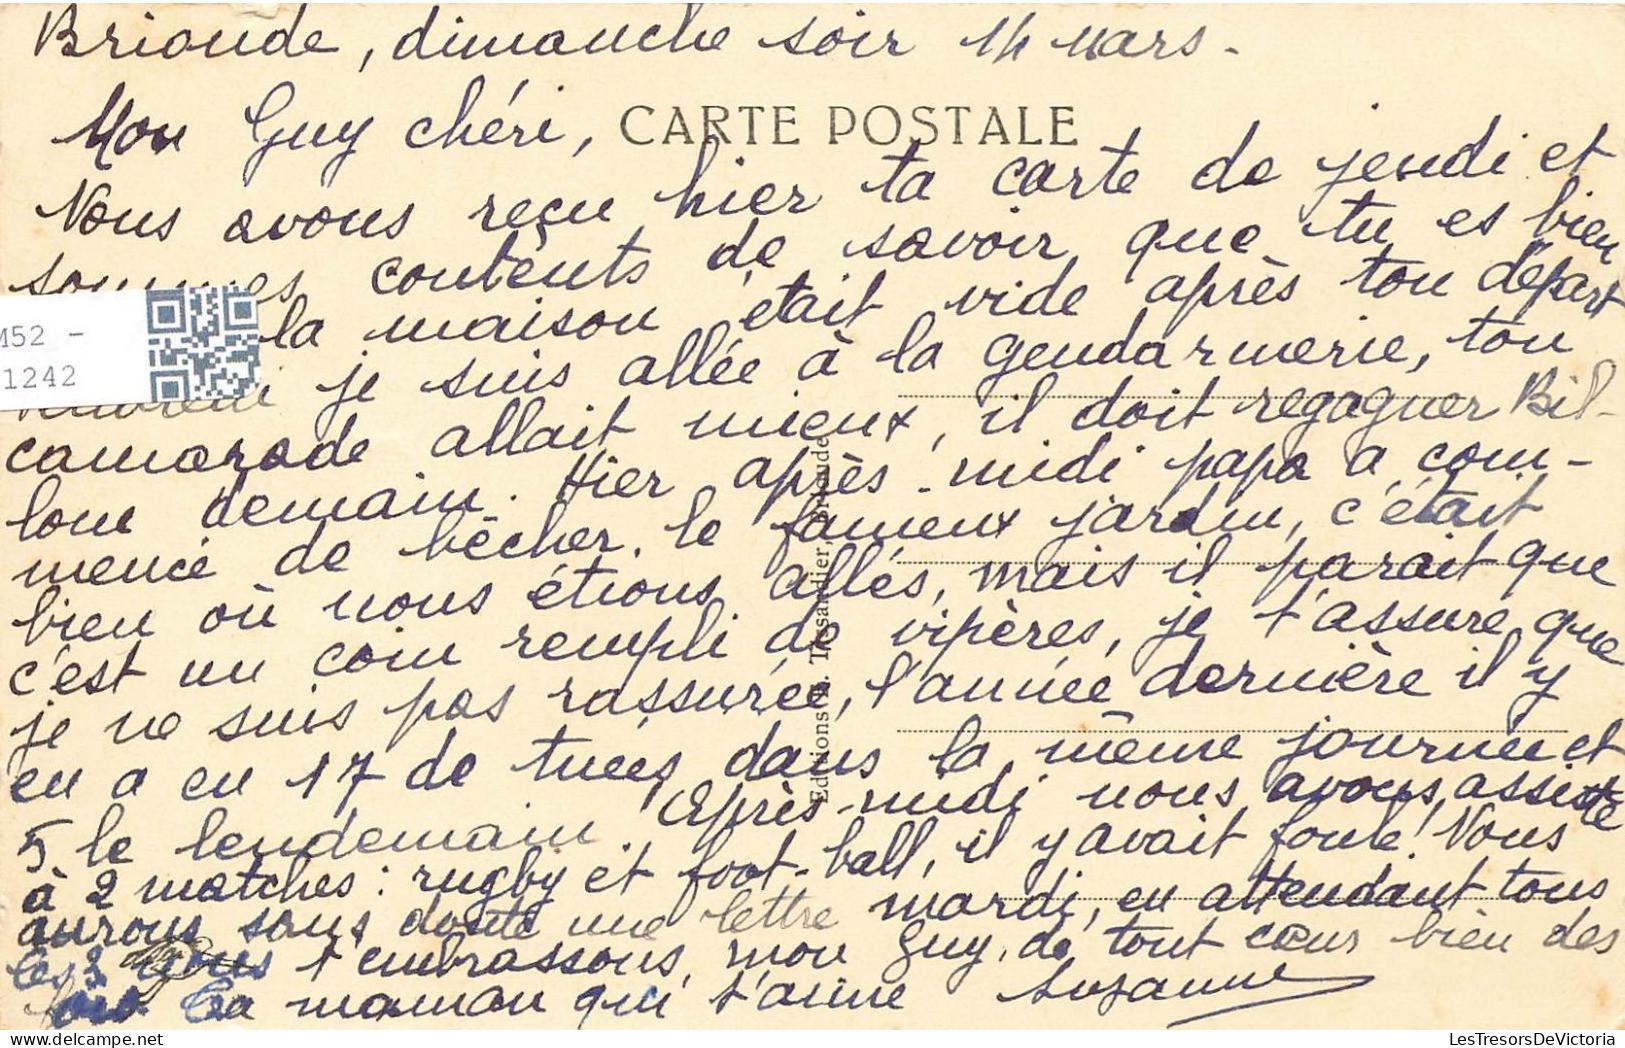 Brioude, dimanche soir 14 mars.
Mon Guy chéri,
CARTE POSTALE
Nous avons reçu hier ta carte de jeudi et
sommes contents de savoir que tu es bien
la maison était vide après ton départ
je suis allée à la gendarmerie, ton
camarade allait mieux, il doit regagner Bil-
lom demain. Hier après-midi papa a com-
mencé de bêcher le fameux jardin, c'était
bien où nous étions allés, mais il parait que
c'est un coin rempli de vipères, je t'assure que
je ne suis pas rassurée, l'année dernière il y
en a eu 17 de tuées dans la même journée et
5 le lendemain. Après-midi nous avons assisté
à 2 matches : rugby et foot-ball, il y avait foule ! Nous
aurons sans doute une lettre mardi, en attendant tous
les 3 nous t'embrassons, mon Guy, de tout cœur bien des
fois ta maman qui t'aime Suzanne
Editions Tessandier, Brioude
M52 -
1242
LesTresorsDeVictoria